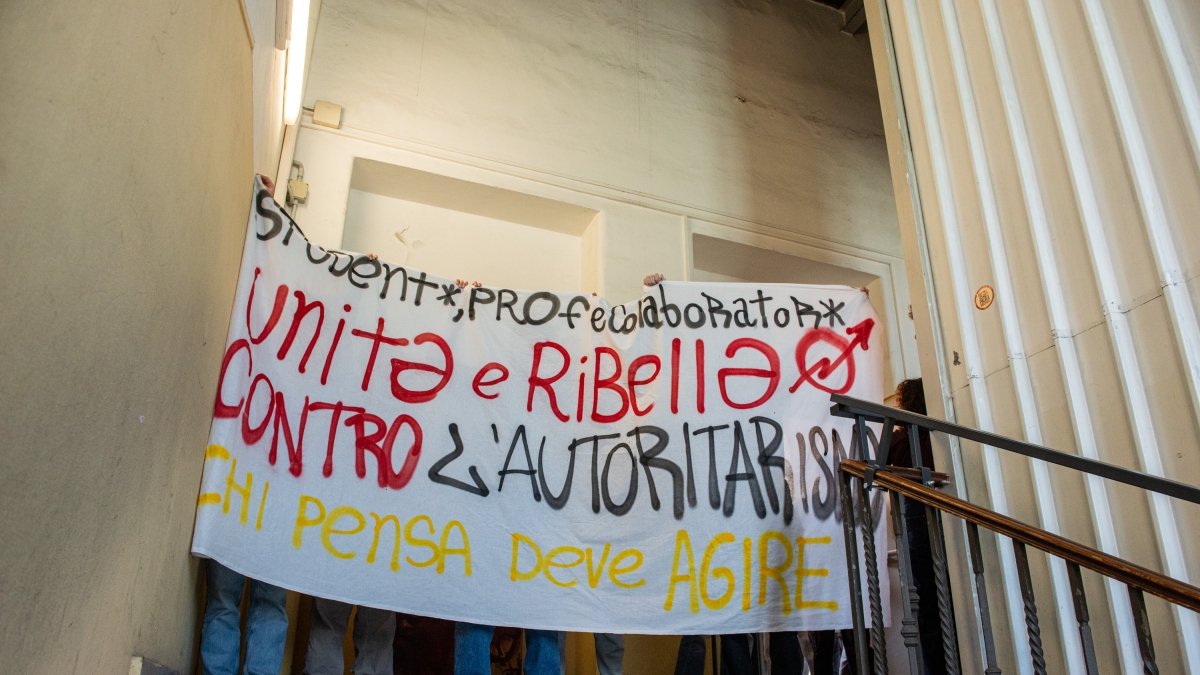 STUDENT*, PROF e COLABORATOR*
UNITƏ e RIBELLƏ
CONTRO L'AUTORITARISMO
CHI PENSA DEVE AGIRE